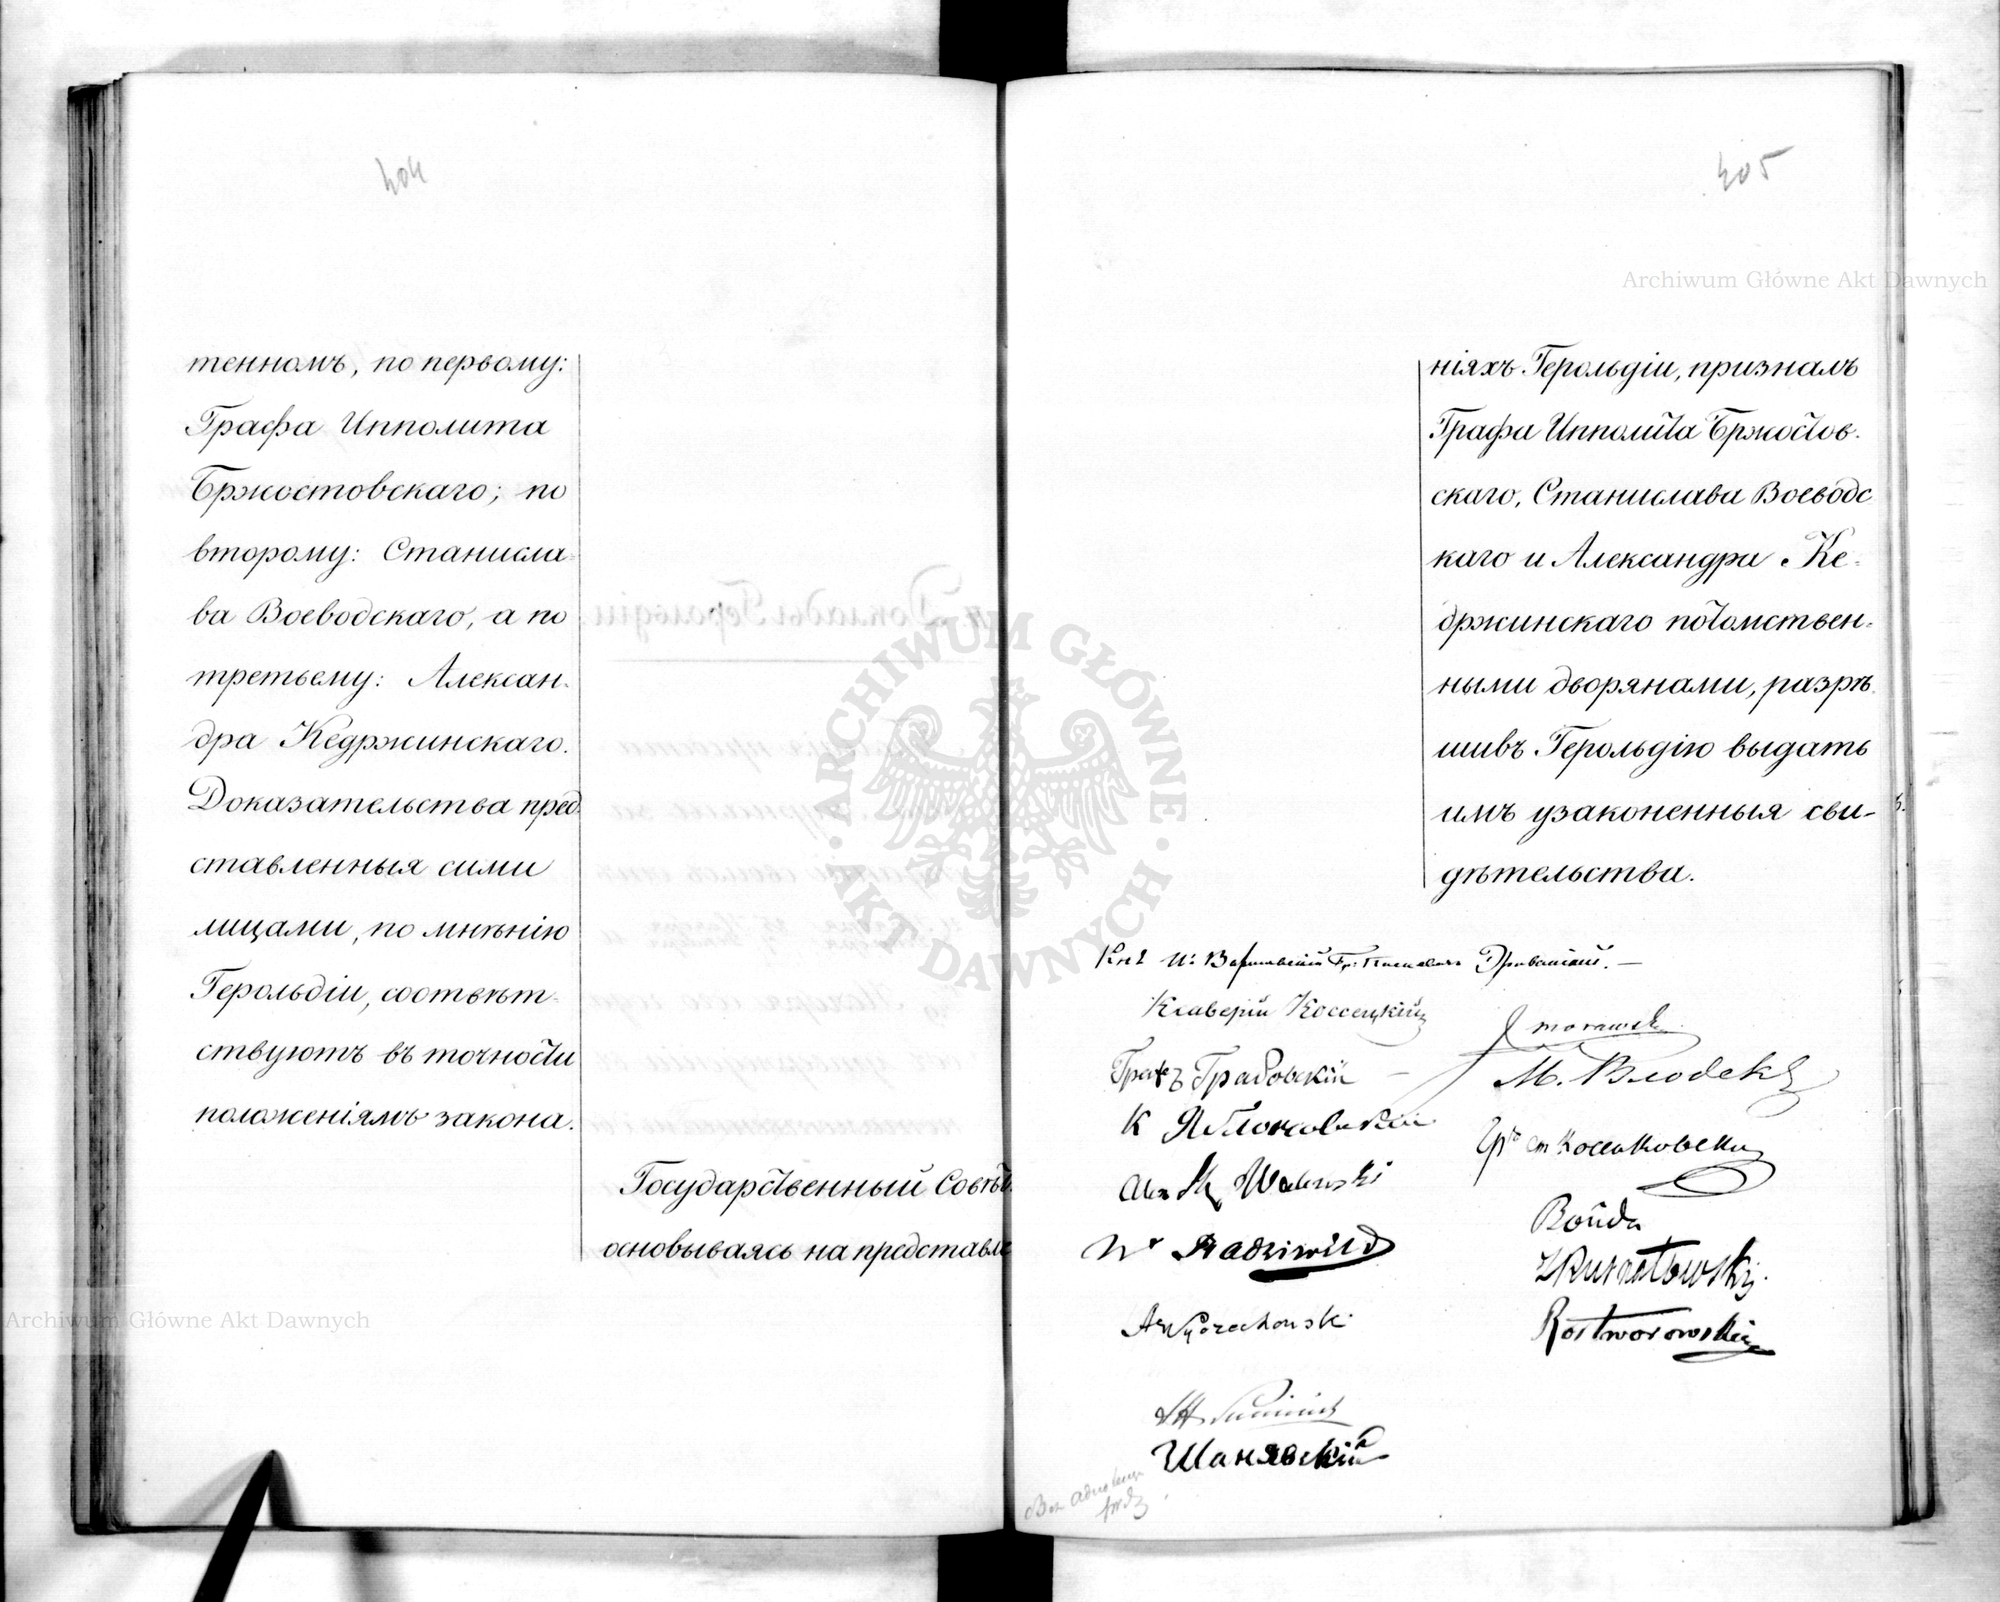 404
тенномъ, по первому:
Графа Ипполита
Бржостовскаго; по
второму: Станисла-
ва Воеводскаго, а по
третьему: Алексан-
дра Кедржинскаго.
Доказательства пред-
ставленныя сими
лицами, по мнѣнію
Герольдіи, соотвѣт-
ствуютъ въ точности
положеніямъ закона.
Государственный Совѣтъ
основываясь на представле
405
Archiwum Główne Akt Dawnych
ніяхъ Герольдіи, призналъ
Графа Ипполита Бржостов-
скаго, Станислава Воеводс
каго и Александра Ке-
држинскаго потомствен-
ными дворянами, разрѣ-
шивъ Герольдію выдать
имъ узаконенныя сви-
дѣтельства.
Варшавскій Гр. Паскевичъ Эриванскій.
Ксаверій Коссецкій
Morawski
Графъ Грабовскій
М. Влодекъ
К Яблоновскій
Гр. Ст Коссаковски
Alex Walewski
Bouda
Radziwiłł
Kurnatowski
Wyczechowski
Rostworowski
Шанявскій
ARCHIWUM GŁÓWNE
AKT DAWNYCH
Archiwum Główne Akt Dawnych